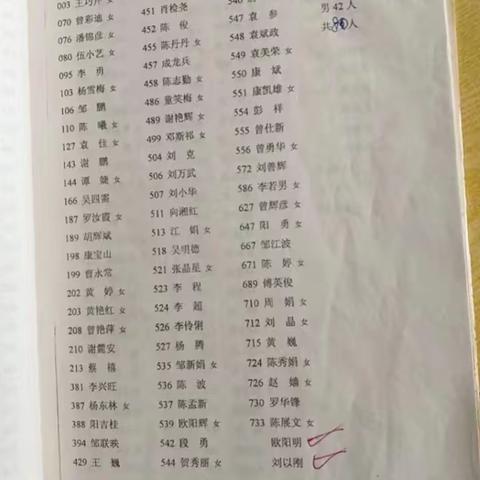 003 王巧芹 女
070 曾彩迪 女
076 潘锦彦 女
080 伍小艺 女
095 李 勇
103 杨雪梅 女
106 邹 鹏
110 陈 曦 女
127 袁 佳 女
143 谢 鹏
144 谭 婕 女
166 吴四需
187 罗汝霞 女
189 胡辉斌
198 康宝山
199 曾永常
202 黄 婷 女
203 黄艳红 女
208 曾艳萍 女
210 谢麓安
213 蔡 禧
381 李兴旺
387 杨东林 女
388 阳吉桂
394 邹联映
429 王 巍
451 肖检尧
452 陈 俊
455 陈丹丹 女
457 成龙兵
458 陈志勤 女
486 童笑梅 女
489 谢艳辉 女
499 邓斯祁 女
504 刘 克
506 刘万武
507 刘小华
511 向湘红
513 江 娟 女
518 吴明德
521 张晶星 女
523 李 程
524 李 超
526 李伶俐
527 杨 腾
535 邹新娟 女
536 陈 波
537 陈孟新
539 欧阳辉 女
542 段 勇
544 贺秀丽 女
547 袁 参
548 袁斌政
549 袁美荣 女
550 康 斌
551 康凯雄 女
554 彭 祥
555 曾仕新
556 曾勇华 女
572 刘善辉
586 李若男 女
627 曾辉彦 女
647 阳 勇 女
667 邹江波
671 陈 婷 女
689 傅英俊
710 周 娟 女
712 刘 晶 女
715 黄 巍
724 陈秀娟 女
726 赵 嫱 女
730 罗华锋
733 陈展文 女
欧阳明
刘以刚
男 42 人
共80人